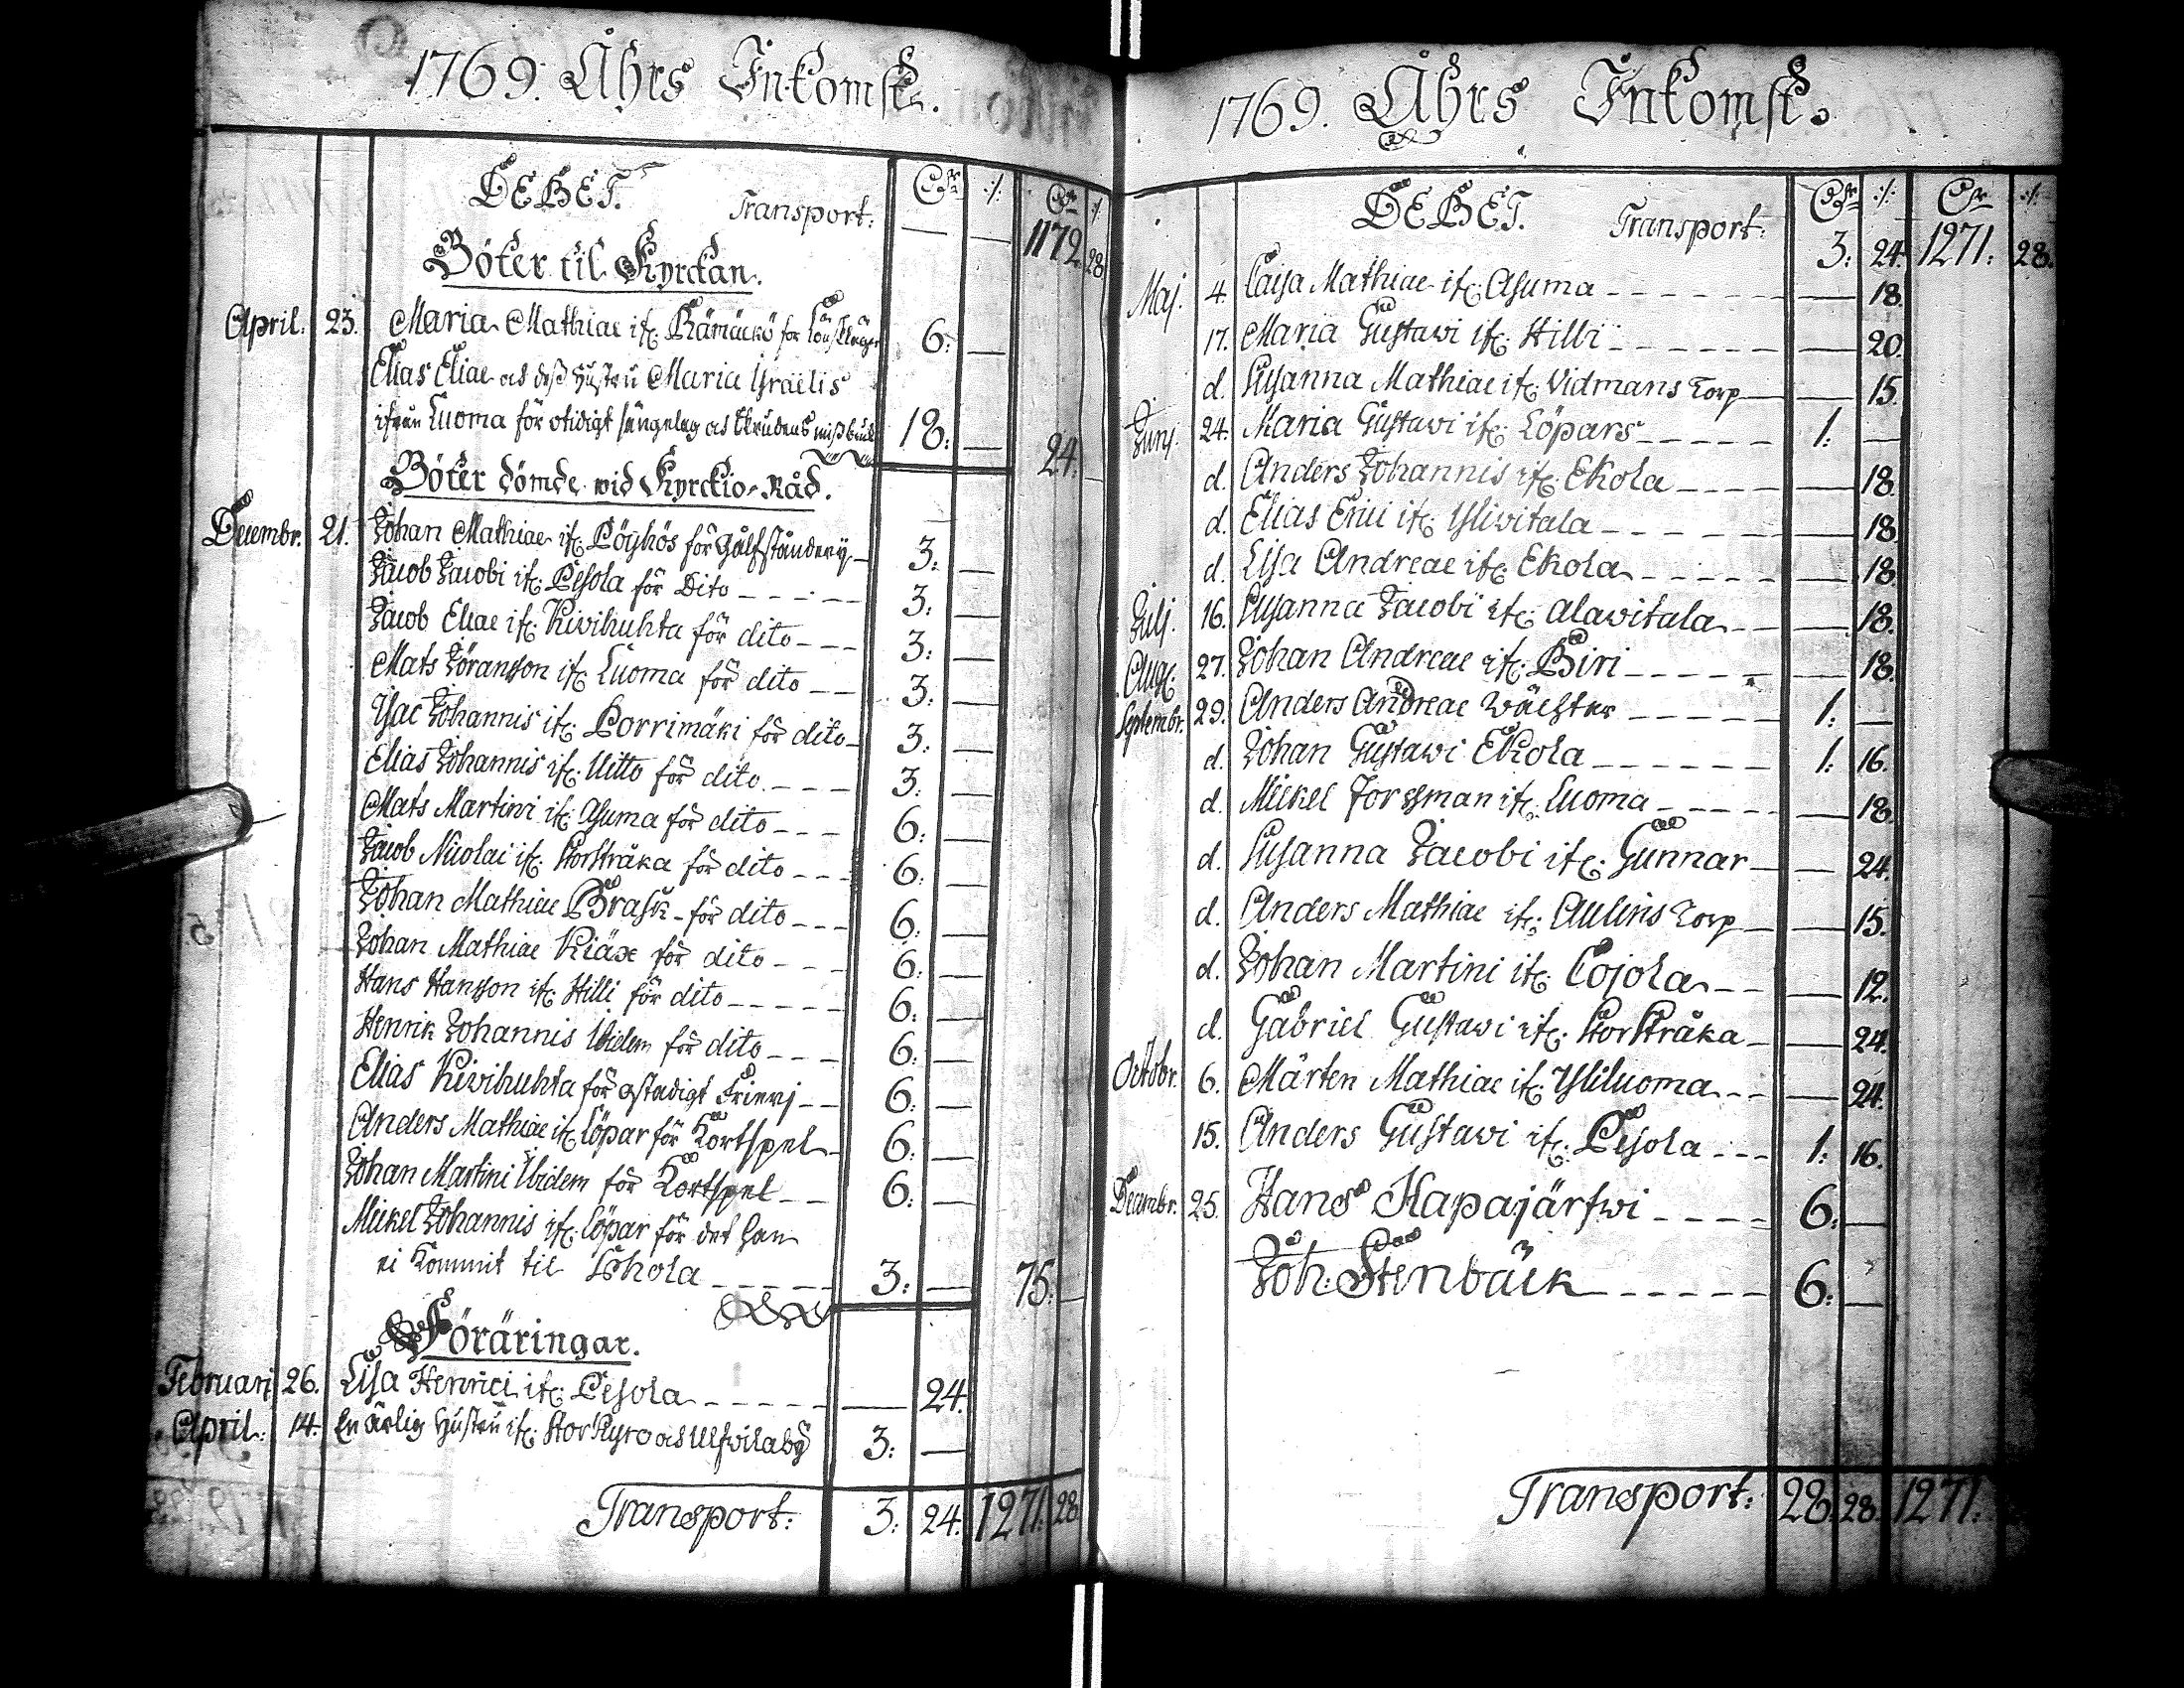 1769. Åhrs Inkomst.
DEBET.
Transport: — — 1172. 28
Böter til Kyrckan.
April. 23. Maria Mathiae ifr. Rämäckö för 6: —
Elias Eliae och dess Hustru Maria Israelis
ifrån Luoma för otidigt sängelag och Skrudens missbruk 18: — 24. —
Böter dömde wid Kyrckio-Råd.
Decembr. 21. Johan Mathiae ifr. Pöyhös för Gålfständerij 3: —
Jacob Jacobi ifr. Pesola för Dito 3: —
Jacob Eliae ifr. Kivihuhta för dito 3: —
Mats Jöransson ifr. Luoma för dito 3: —
Isac Johannis ifr. Porrimäki för dito 3: —
Elias Johannis ifr. Uitto för dito 3: —
Mats Martini ifr. Asuma för dito 6: —
Jacob Nicolai ifr. Storstråka för dito 6: —
Johan Mathiae Brask för dito 6: —
Johan Mathiae Kiäx för dito 6: —
Hans Hansson ifr. Hilli för dito 6: —
Henrik Johannis Ibidem för dito 6: —
Elias Kivihuhta för ostadigt Frierij 6: —
Anders Mathiae ifr. Löpar för Kortspel 6: —
Johan Martini Ibidem för Kortspel 6: —
Mickel Johannis ifr. Löpar för det han
ei Kommit til Schola 3: — 75: —
Föräringar.
Februarj 26. Lisa Henrici ifr. Pesola — 24.
April. 14. En ärlig Hustru ifr. StorKyro och Ulfvilaby 3: —
Transport: 3: 24. 1271: 28
1769. Åhrs Inkomst.
DEBET. Transport: 3: 24. 1271: 28.
Maj. 4. Caisa Mathiae ifr. Asuma — 18.
17. Maria Gustavi ifr. Hilli — 20.
d. Susanna Mathiae ifr. Vidmans Torp — 15.
Junj. 24. Maria Gustavi ifr. Löpars 1: —
d. Anders Johannis ifr. Ekola — 18.
d. Elias Erici ifr. Yliwitala — 18.
d. Lisa Andreae ifr. Ekola — 18.
Julj. 16. Susanna Jacobi ifr. Alawitala — 18.
Aug. 27. Johan Andreae ifr. Biri — 18.
Septembr. 29. Anders Andreae Wächter 1: —
d. Johan Gustavi Ekola 1: 16.
d. Mickel Forssman ifr. Luoma — 18.
d. Susanna Jacobi ifr. Gunnar — 24.
d. Anders Mathiae ifr. Aulins Torp — 15.
d. Johan Martini ifr. Cojola — 12.
d. Gabriel Gustavi ifr. Storstråka — 24.
Octobr. 6. Mårten Mathiae ifr. Yliluoma — 24.
15. Anders Gustavi ifr. Pesola 1: 16.
Decembr. 25. Hans Hapajärfwi 6: —
Joh: Stenbäck 6: —
Transport: 28. 28. 1271: